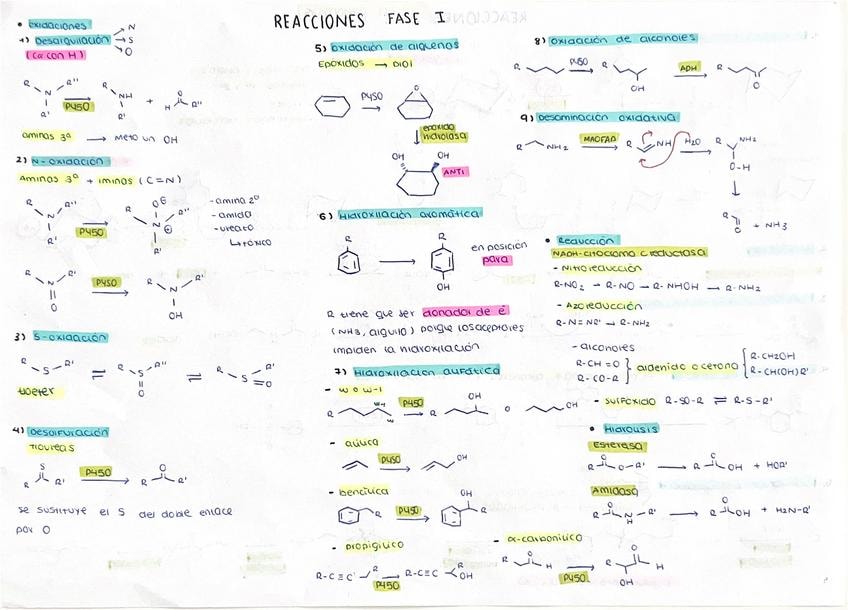 REACCIONES FASE I
• Oxidaciones
1) Desalquilación
N
S
O
(Cα con H)
R N R''
R'
P450
R NH
R'
+
H R''
O
aminas 3ª → meto un OH
2) N-oxidación
Aminas 3ª + iminas (C=N)
R N R''
R'
P450
O⊖
R N R''
⊕
R'
-amina 2ª
-amida
-ureato
↳ tóxico
R N R'
O
P450
R N R'
OH
3) S-oxidación
R S R'
⇌
R S R'
O
⇌
R S=O
R'
tioeter
4) Desulfuración
tioureas
S
R R'
P450
O
R R'
se sustituye el S del doble enlace
por O
5) oxidación de alquenos
Epóxidos → Diol
P450
O
epóxido
hidrolasa
OH OH
ANTI
6) Hidroxilación aromática
R
R
OH
en posición
para
R tiene que ser donador de é
(NH3, alquilo) porque los aceptores
impiden la hidroxilación
7) Hidroxilación alifática
- w o w-1
R w-1 w
P450
R OH
o
OH
- alílica
P450
OH
- bencílica
R
P450
OH
R
- propigílico
R-C≡C R
P450
R-C≡C R OH
- α-carbonílico
R O H
P450
R O H
OH
8) oxidación de alcoholes
R
P450
R
OH
ADH
R
O
9) Desaminación oxidativa
R NH2
MAOFAD
R NH
H2O
R NH2
O-H
R
O
+ NH3
• Reducción
NADH-citocromo c reductasa
- Nitroreducción
R-NO2 → R-NO → R-NHOH → R-NH2
- Azoreducción
R-N=NR' → R-NH2
- alcoholes
R-CH=O
R-CO-R
} aldehído o cetona {
R-CH2OH
R-CH(OH)R'
- sulfóxido R-SO-R ⇌ R-S-R'
• Hidrólisis
Esterasa
O
R O-R'
→
O
R OH
+ HOR'
Amidasa
O
R N-R'
H
→
O
R OH
+ H2N-R'